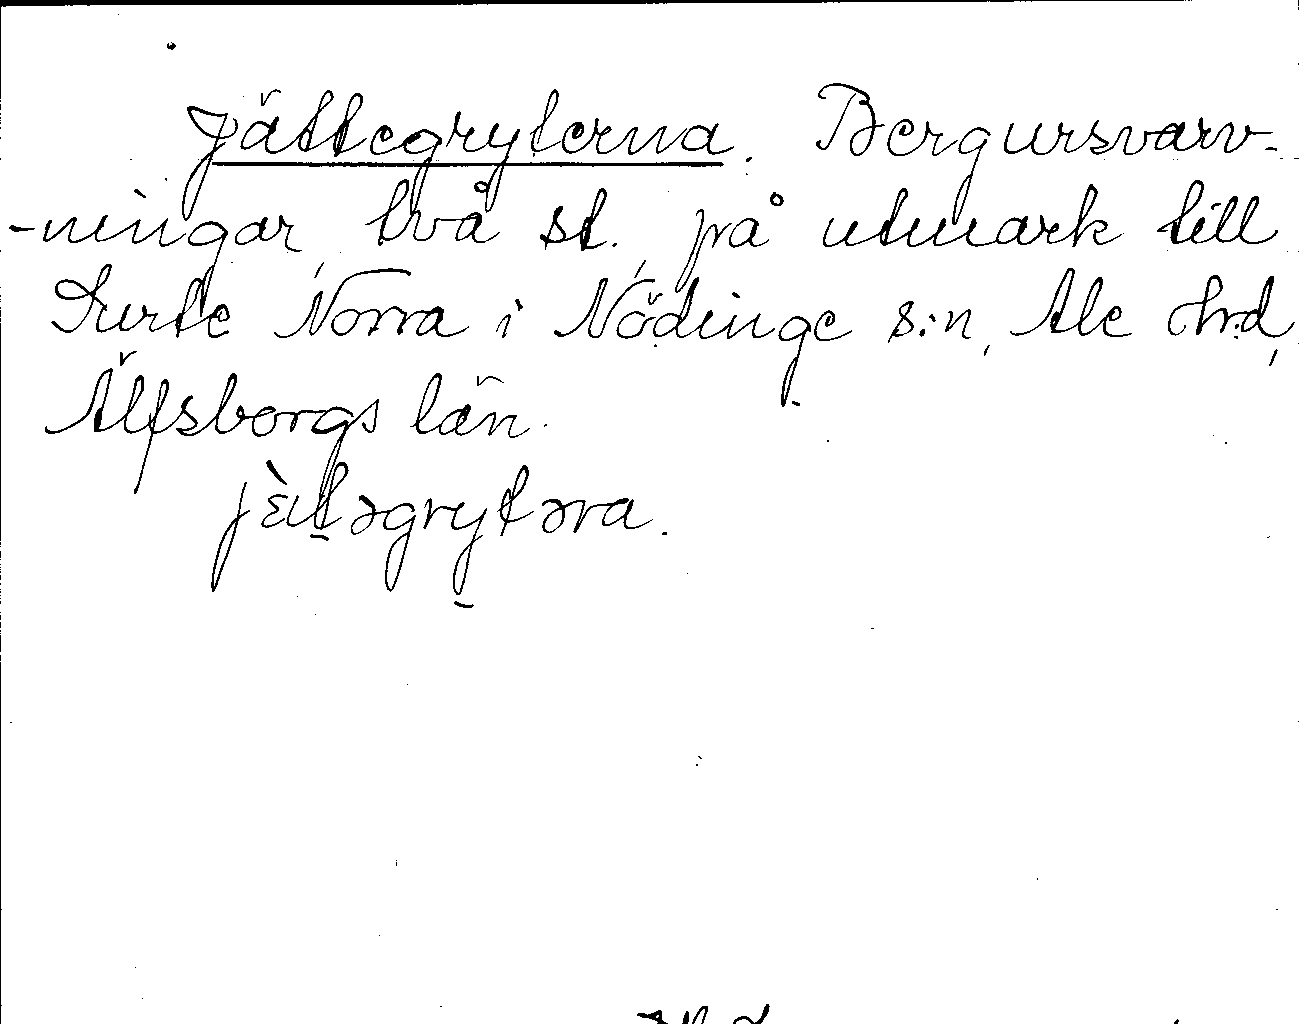 Jättegryterna. Bergursvarv-
-ningar, två st. på utmark till
Surte Norra i Nödinge s:n, Ale hrd,
Älfsborgs län.
jὲt̠əgry̠tərna.